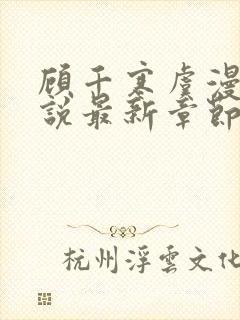 顾千寒虞漫
說最新章節
杭州浮雲文化